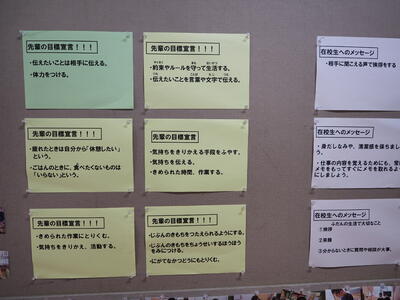 先輩の目標宣言！！！
・伝えたいことは相手に伝える。
・体力をつける。
先輩の目標宣言！！！
・約束やルールを守って生活する。
・伝えたいことを言葉や文字で伝える。
在校生へのメッセージ
・相手に聞こえる声で挨拶をする
先輩の目標宣言！！！
・疲れたときは自分から「休憩したい」
という。
・ごはんのときに、食べたくないものは
「いらない」という。
先輩の目標宣言！！！
・気持ちをきりかえる手段をふやす。
・気持ちを伝える。
・きめられた時間、作業する。
在校生へのメッセージ
・身だしなみや、清潔感を保ちましょ
う。
・仕事の内容を覚えるためにも、常に
メモをもってすぐにメモを取れるよう
にしましょう。
先輩の目標宣言！！！
・きめられた作業にとりくむ。
・気持ちをきりかえ、活動する。
先輩の目標宣言！！！
・じぶんのきもちをつたえられるようにする。
・じぶんのきもちをちょうせいするほうほう
をみにつける。
・にがてなかつどうにもとりくむ。
在校生へのメッセージ
ふだんの生活で大切なこと
①挨拶
②
③分からないときに質問や相談が大事。